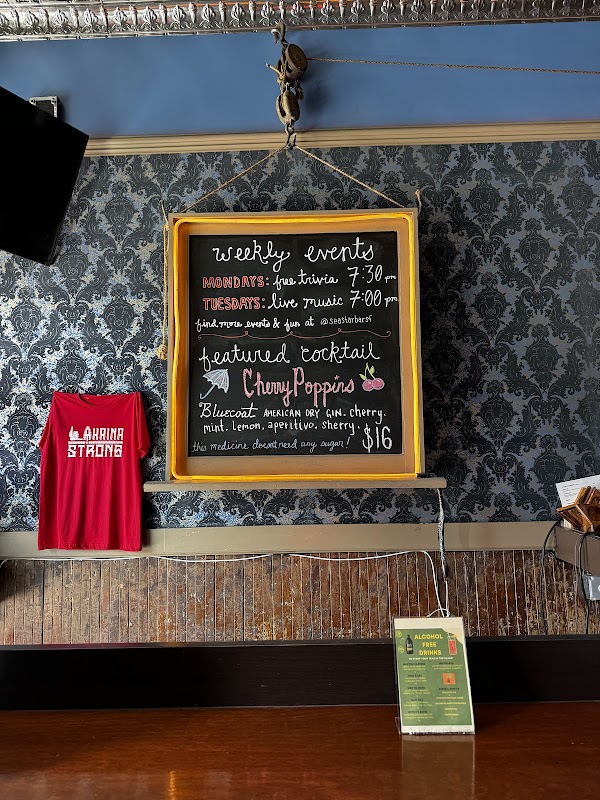 weekly events
MONDAYS: free trivia 7:30 pm
TUESDAYS: live music 7:00 pm
find more events & fun at @seastarbarsf
featured cocktail
Cherry Poppins
Bluecoat AMERICAN DRY GIN. cherry.
mint. lemon. aperitivo. sherry.
$16
this medicine doesn't need any sugar!
AKRINA
STRONG
ALCOHOL
FREE
DRINKS